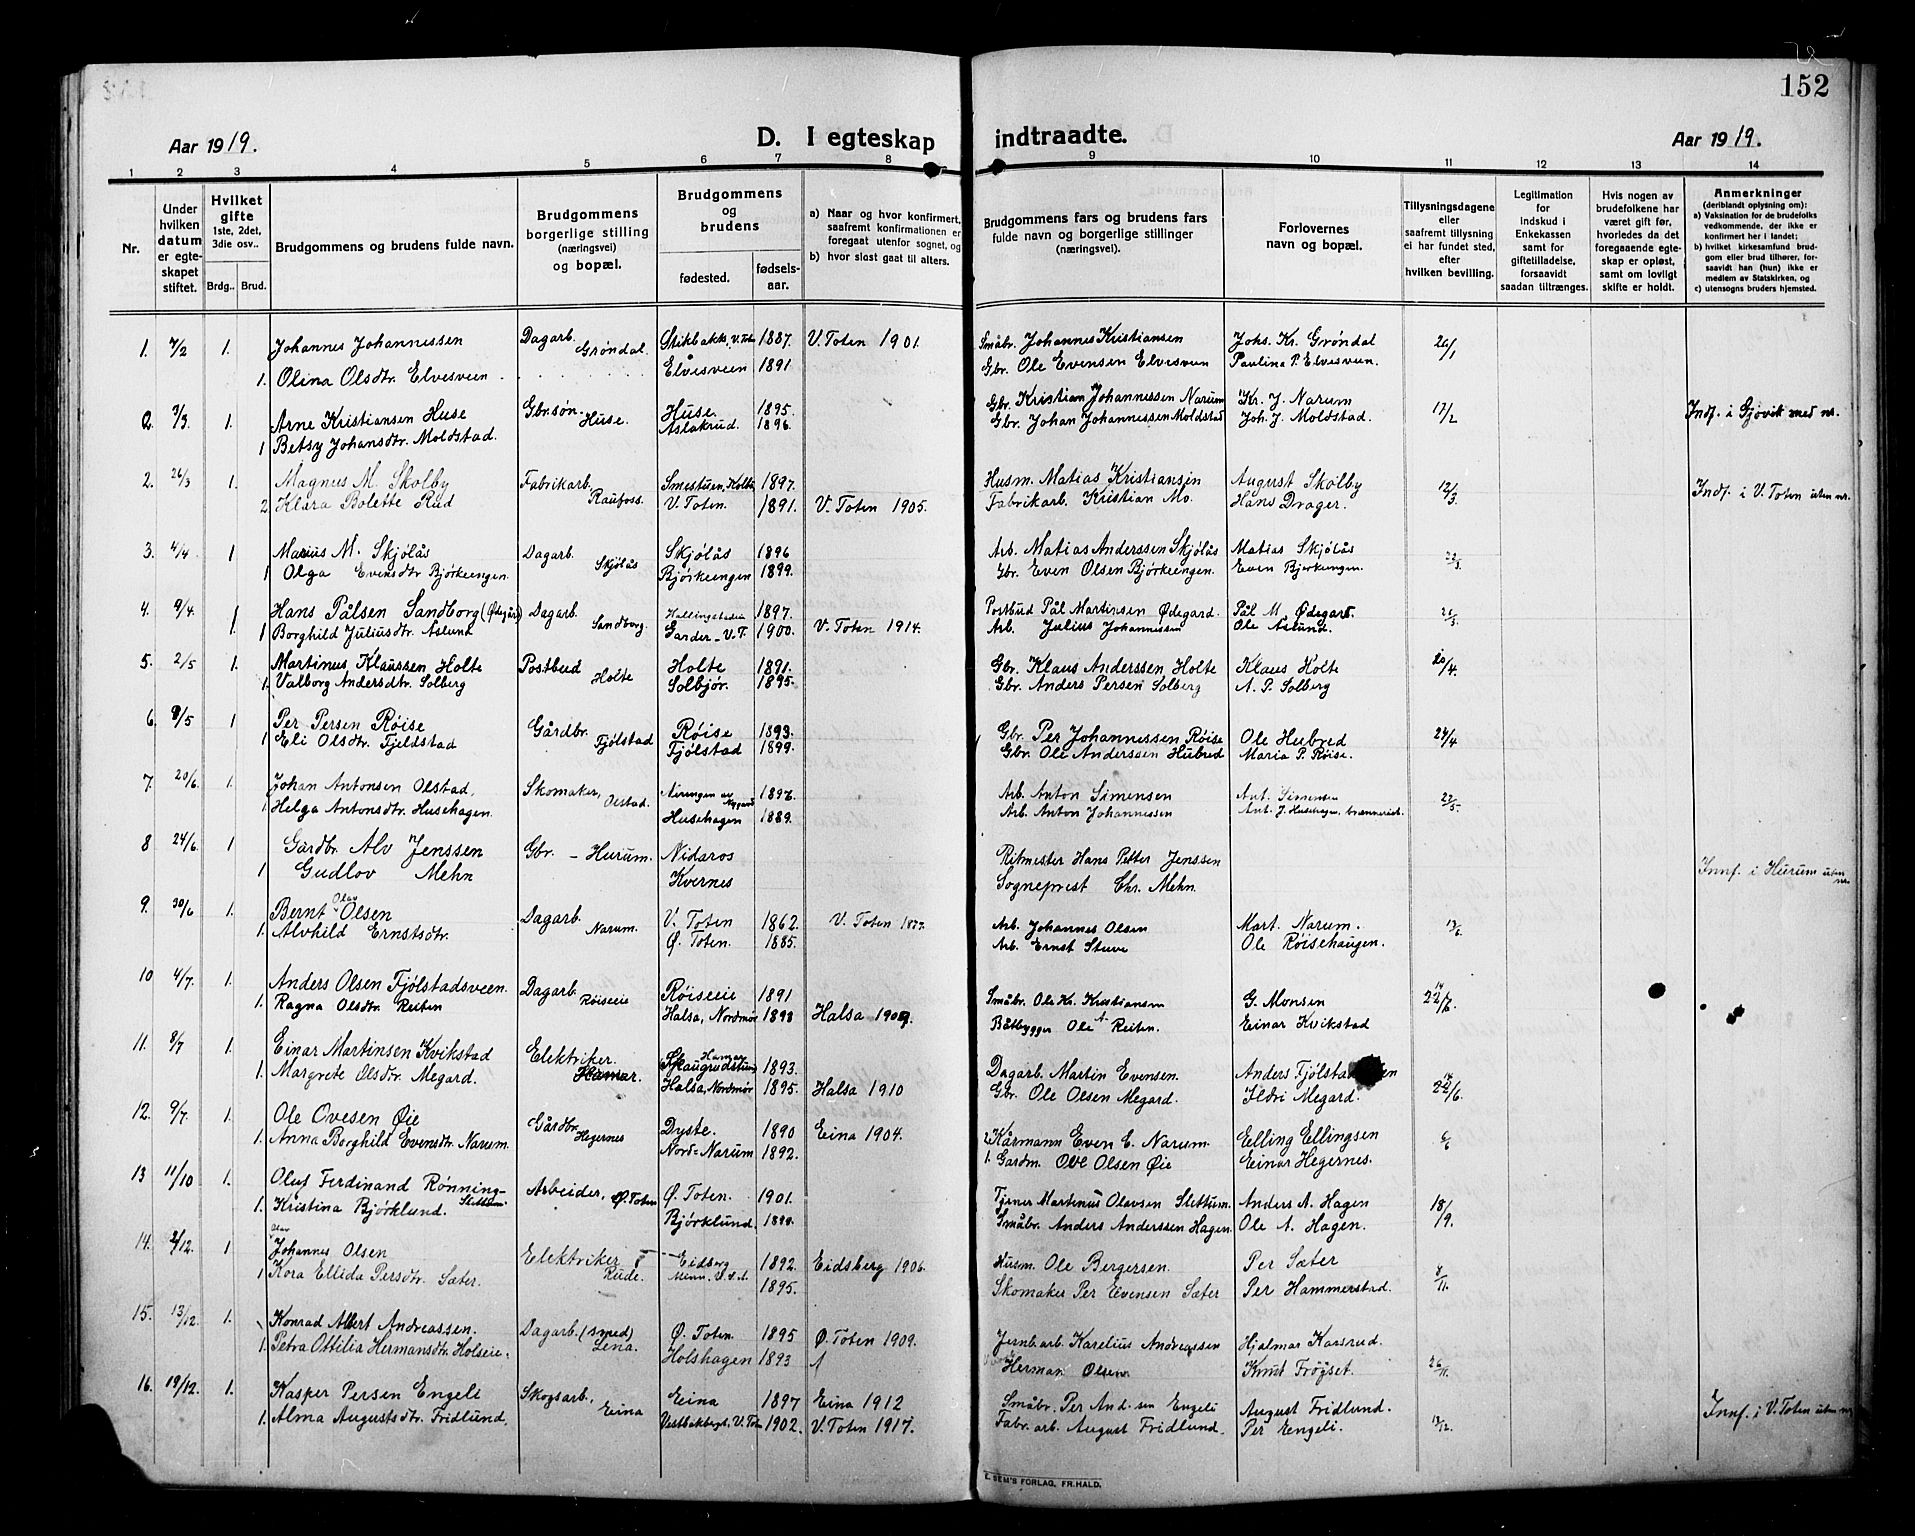 152
Aar 1919.
D. I egteskap indtraadte.
Aar 1919.
1 2 3 4 5 6 7 8 9 10 11 12 13 14
Nr.
Under hvilken datum er egteskapet stiftet.
Hvilket gifte 1ste, 2det, 3die osv..
Brdg.. Brud.
Brudgommens og brudens fulde navn.
Brudgommens borgerlige stilling (næringsvei) og bopæl.
Brudgommens og brudens
fødested.
fødselsaar.
a) Naar og hvor konfirmert, saafremt konfirmationen er foregaat utenfor sognet, og
b) hvor sidst gaat til alters.
Brudgommens fars og brudens fars fulde navn og borgerlige stillinger (næringsvei).
Forlovernes navn og bopæl.
Tillysningsdagene eller saafremt tillysning ei har fundet sted, efter hvilken bevilling.
Legitimation for indskud i Enkekassen samt for giftetilladelse, forsaavidt saadan tiltrænges.
Hvis nogen av brudefolkene har været gift før, hvorledes da det foregaaende egteskap er opløst, samt om lovligt skifte er holdt.
Anmerkninger (deriblandt oplysning om):
a) Vaksination for de brudefolks vedkommende, der ikke er konfirmert her i landet;
b) hvilket kirkesamfund brudgom eller brud tilhører, forsaavidt han (hun) ikke er medlem av Statskirken, og
c) utensogns bruders hjemsted.
1. 7/2 1. Johannes Johannessen Dagarb. Grøndal. Stikbakke, V. Toten 1887. V. Toten 1901. Småbr. Johannes Kristiansen Johs. Kr. Grøndal 26/1
1. Olina Olsdtr. Elvesveen Elvesveen 1891 Gbr. Ole Evensen Elvesveen Paulina P. Elvesveen.
2. 3/3. 1. Arne Kristiansen Huse Gbr.søn. Huse. Huse. 1895. Gbr. Kristian Johannessen Narum Kr. J. Narum 17/2 Indf. i Gjøvik med nr.
1 Betsy Johansdtr. Moldstad. Aslakrud. 1896. Gbr. Johan Johannessen Moldstad Joh. J. Moldstad.
2. 26/3 1. Magnus M. Skolby Fabrikarb. Raufoss. Smestuen, Kolbu 1897. Husm. Matias Kristiansen August Skolby 12/3 Indf. i V. Toten uten nr.
2 Klara Bolette Rud V. Toten. 1891. V. Toten 1905. Fabrikarb. Kristian Mo. Hans Drager.
3. 4/4. 1 Marius M. Skjølås Dagarb. Skjølås Skjølås 1896 Arb. Matias Anderssen Skjølås Matias Skjølås 22/3.
1 Olga Evensdtr Bjørkeengen. Bjørkeengen 1899. Gbr. Even Olsen Bjørkeengen. Even Bjerkengen.
4. 9/4. 1. Hans Pålsen Sandborg (Ødegård) Dagarb. Sandborg. 1897. Postbud Pål Martinsen Ødegard. Pål M. Ødegard.
1 Borghild Juliusdtr. Aslund Garder - V.T. 1900. V. Toten 1914. Arb. Julius Johannessen Ole Aslund.
5. 2/5 1. Martinus Klaussen Holte Postbud Holte Holte 1891. Gbr. Klaus Anderssen Holte Klaus Holte 20/4.
1. Valborg Andersdtr. Solberg Solbjør. 1895. Gbr. Anders Persen Solberg A. P. Solberg
6. 9/5 1 Per Persen Røise Gårdbr. Fjølstad Røise 1893. Gbr. Per Johannessen Røise Ole Hubred 24/4
1 Eli Olsdtr. Fjeldstad Fjølstad 1899. Gbr. Ole Anderssen Hubred Maria P. Røise.
7. 20/6. 1. Johan Antonsen Olstad. Skomaker, Olstad. 1896. Arb. Anton Simensen Ant. Simensen 22/5.
1 Helga Antonsdtr. Husehagen. Husehagen 1889. Arb. Anton Johannessen Ant. J. Husehagen, brænnerieiet.
8 24/6. 1 Gårdbr Alv Jenssen Gbr. - Hurum. Nidaros Ritmester Hans Petter Jenssen Innf. i Hurum uten nr.
1 Gudlov Mehn Kvernes Sogneprest Chr. Mehn.
9. 30/6 1. Bernt Olav Olsen Dagarb. Narum. V. Toten 1862. V. Toten 1877. Arb. Johannes Olsen Mart. Narum. 13/6.
1. Alvhild Ernstsdtr. Ø. Toten. 1885. Arb. Ernst Stuve Ole Røisehaugen.
10 4/7. 1. Anders Olsen Fjølstadsveen. Dagarb. Røiseeie Røiseeie 1891 Småbr. Ole Kr. Kristiansen G. Monsen
1. Ragna Olsdtr Reiten Halsa, Nordmør 1898 Halsa 1909. Båtbygger Ole A. Reiten. Einar Kvikstad
11. 9/7 1. Einar Martinsen Kvikstad Elektriker. Hamar. 1893. Dagarb. Martin Evensen. Anders Fjølstadsveen
1. Margrete Olsdtr. Megard. Halsa, Nordmør 1895. Halsa 1910 Gbr. Ole Olsen Megard. Ildri Megard.
12. 9/7. 1. Ole Ovesen Øie Gårdbr. Hegernes Dyste. 1890 Eina 1904. 2. Kårmann Even E. Narum. Elling Ellingsen 6/6
1. Anna Borghild Evensdtr. Narum. Nord-Narum 1892. 1. Gardm. Ove Olsen Øie Einar Hegernes.
13 11/10 1. Oluf Ferdinand Rønning-Slettum Arbeider, Ø. Toten Ø. Toten. 1901. Martinius Olavsen Slettum. Anders A. Hagen 18/9.
1. Kristina Bjørklund. Bjørklund. 1898. Småbr. Anders Anderssen Hagen. Ole A. Hagen.
14. 2/12. 1 Johannes Olav Olsen Elektriker Rude. Eidberg 1892. Eidsberg 1906. Husm. Ole Bergersen. Per Sæter 8/11.
1 Kora Ellida Persdtr. Sæter. 1895. Skomaker Per Evensen Sæter Per Hammerstad.
15. 13/12 1. Konrad Albert Andreassen. Dagarb. (smed) Lena. Ø. Toten. 1895 Ø. Toten 1909. Jernbarb. Karelius Andreassen Hjalmar Karsrud.
1. Petra Ottilia Hermansdtr. Holseie. Holshagen 1893 Herman Olsen Knut Frøyset. 26/11.
16. 19/12. 1. Kasper Persen Engeli Skogsarb. Eina Eina 1897 Eina 1912 Småbr. Per And.sen Engeli August Fridlund. Innf. i V. Toten uten nr
1. Alma Augustsdtr Fridlund. Vestbakbergt, V. Toten 1902. V. Toten 1917. Fabr. arb. August Fridlund. Per Engeli. 12/12.
E. SEM'S FORLAG, FR.HALD.